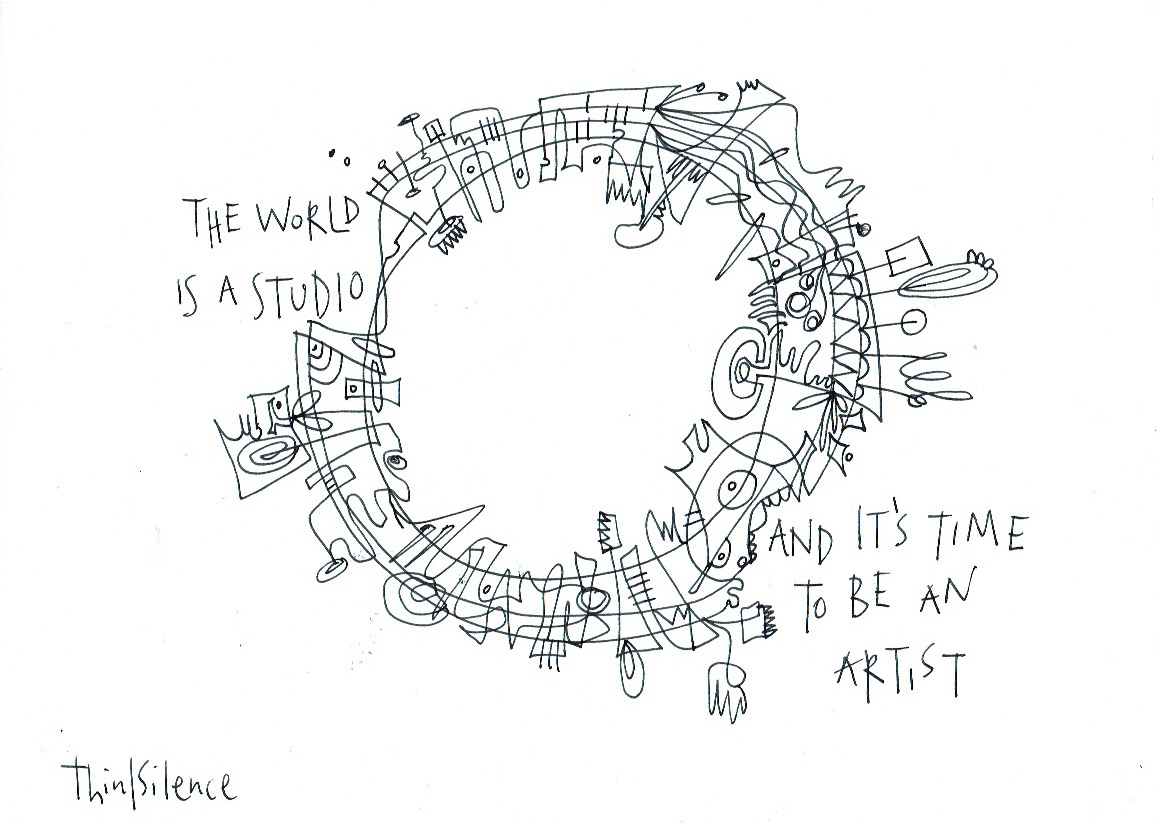 THE WORLD
IS A STUDIO
AND IT'S TIME
TO BE AN
ARTIST
Thin/Silence